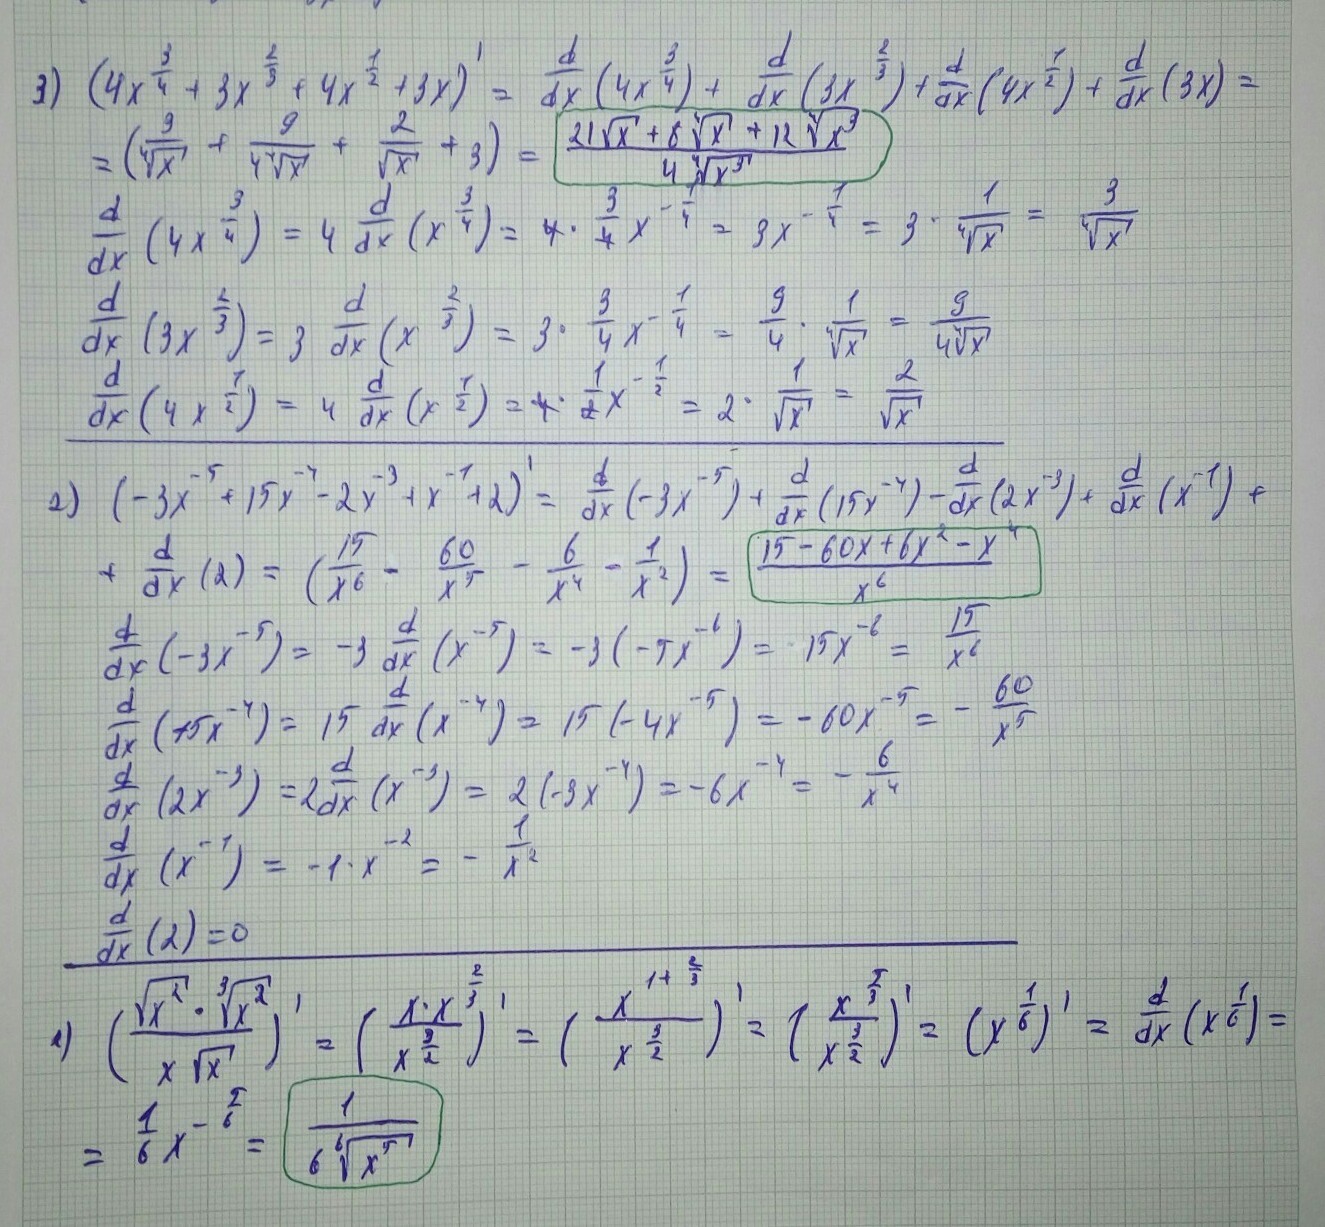 3) (4x^{3/4} + 3x^{2/3} + 4x^{1/2} + 3x)' = d/dx (4x^{3/4}) + d/dx (3x^{2/3}) + d/dx (4x^{1/2}) + d/dx (3x) =
= (3/∜x + 9/4∜x + 2/√x + 3) = (21√x + 8∜x + 12∜x³)/(4∜x³)
d/dx (4x^{3/4}) = 4 d/dx (x^{3/4}) = 4 · 3/4 x^{-1/4} = 3x^{-1/4} = 3 · 1/∜x = 3/∜x
d/dx (3x^{2/3}) = 3 d/dx (x^{2/3}) = 3 · 3/4 x^{-1/4} = 9/4 · 1/∜x = 9/4∜x
d/dx (4x^{1/2}) = 4 d/dx (x^{1/2}) = 4 · 1/2 x^{-1/2} = 2 · 1/√x = 2/√x
2) (-3x^{-5} + 15x^{-4} - 2x^{-3} + x^{-1} + 2)' = d/dx (-3x^{-5}) + d/dx (15x^{-4}) - d/dx (2x^{-3}) + d/dx (x^{-1}) +
+ d/dx (2) = (15/x^6 - 60/x^5 - 6/x^4 - 1/x^2) = (15 - 60x + 6x^2 - x^4)/x^6
d/dx (-3x^{-5}) = -3 d/dx (x^{-5}) = -3(-5x^{-6}) = 15x^{-6} = 15/x^6
d/dx (15x^{-4}) = 15 d/dx (x^{-4}) = 15(-4x^{-5}) = -60x^{-5} = - 60/x^5
d/dx (2x^{-3}) = 2 d/dx (x^{-3}) = 2(-3x^{-4}) = -6x^{-4} = - 6/x^4
d/dx (x^{-1}) = -1 · x^{-2} = - 1/x^2
d/dx (2) = 0
1) (√x² · ∛x² / x√x)' = (x·x^{2/3} / x^{3/2})' = (x^{1+2/3} / x^{3/2})' = (x^{5/3} / x^{3/2})' = (x^{1/6})' = d/dx (x^{1/6}) =
= 1/6 x^{-5/6} = 1/(6 ⁶√x⁵)